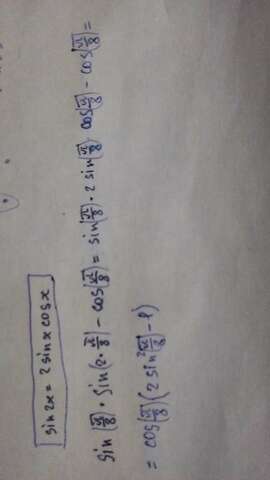 sin 2x = 2 sin x cos x
sin(π/8) · sin(2 · π/8) - cos(π/8) = sin(π/8) · 2 sin(π/8) cos(π/8) - cos(π/8) =
= cos(π/8) (2 sin² π/8 - 1)